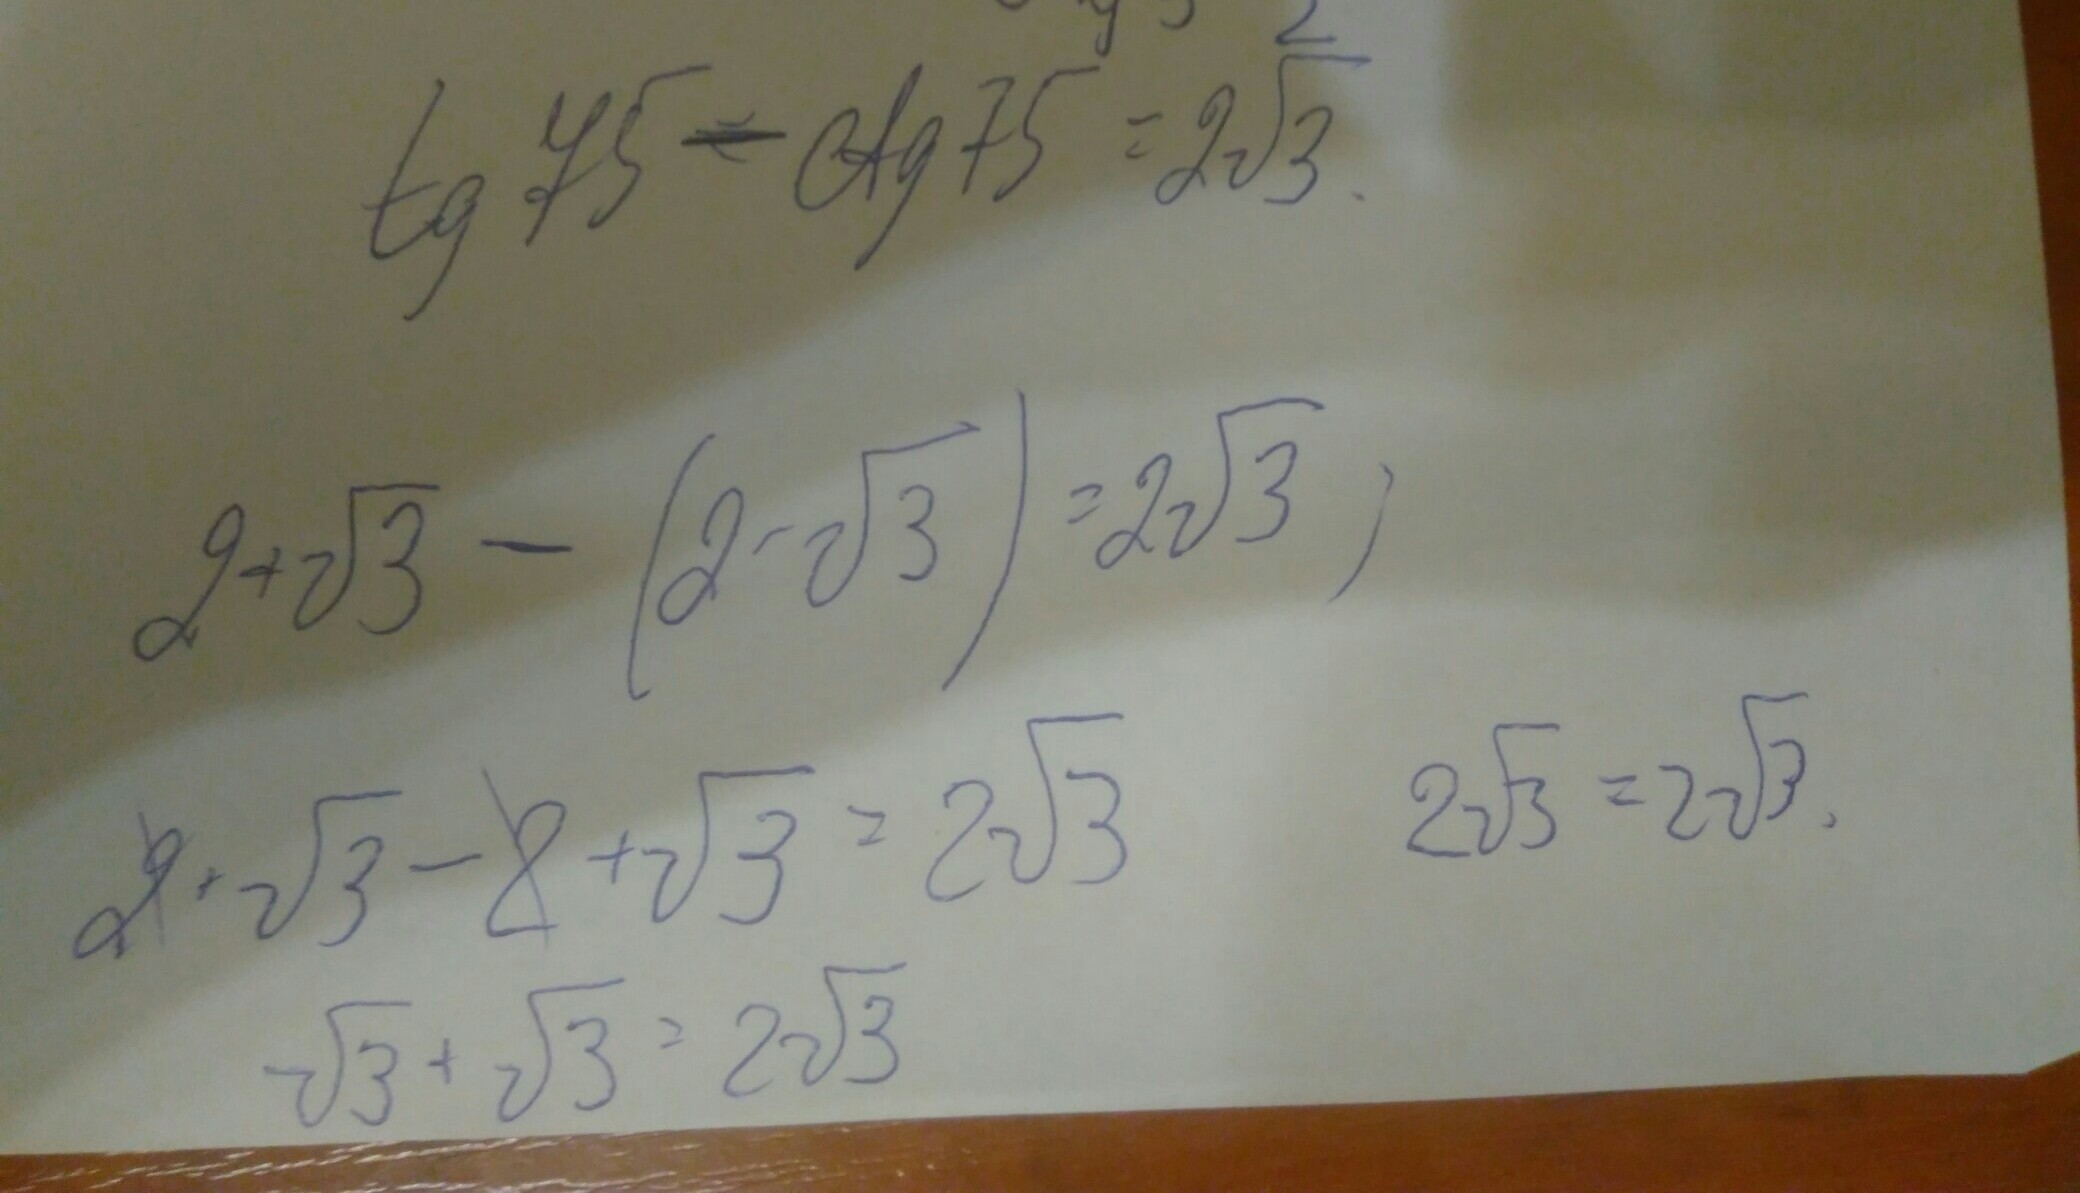 tg 75 - ctg 75 = 2√3.
2+√3 - (2-√3) = 2√3;
2+√3-2+√3 = 2√3 2√3 = 2√3.
√3+√3 = 2√3